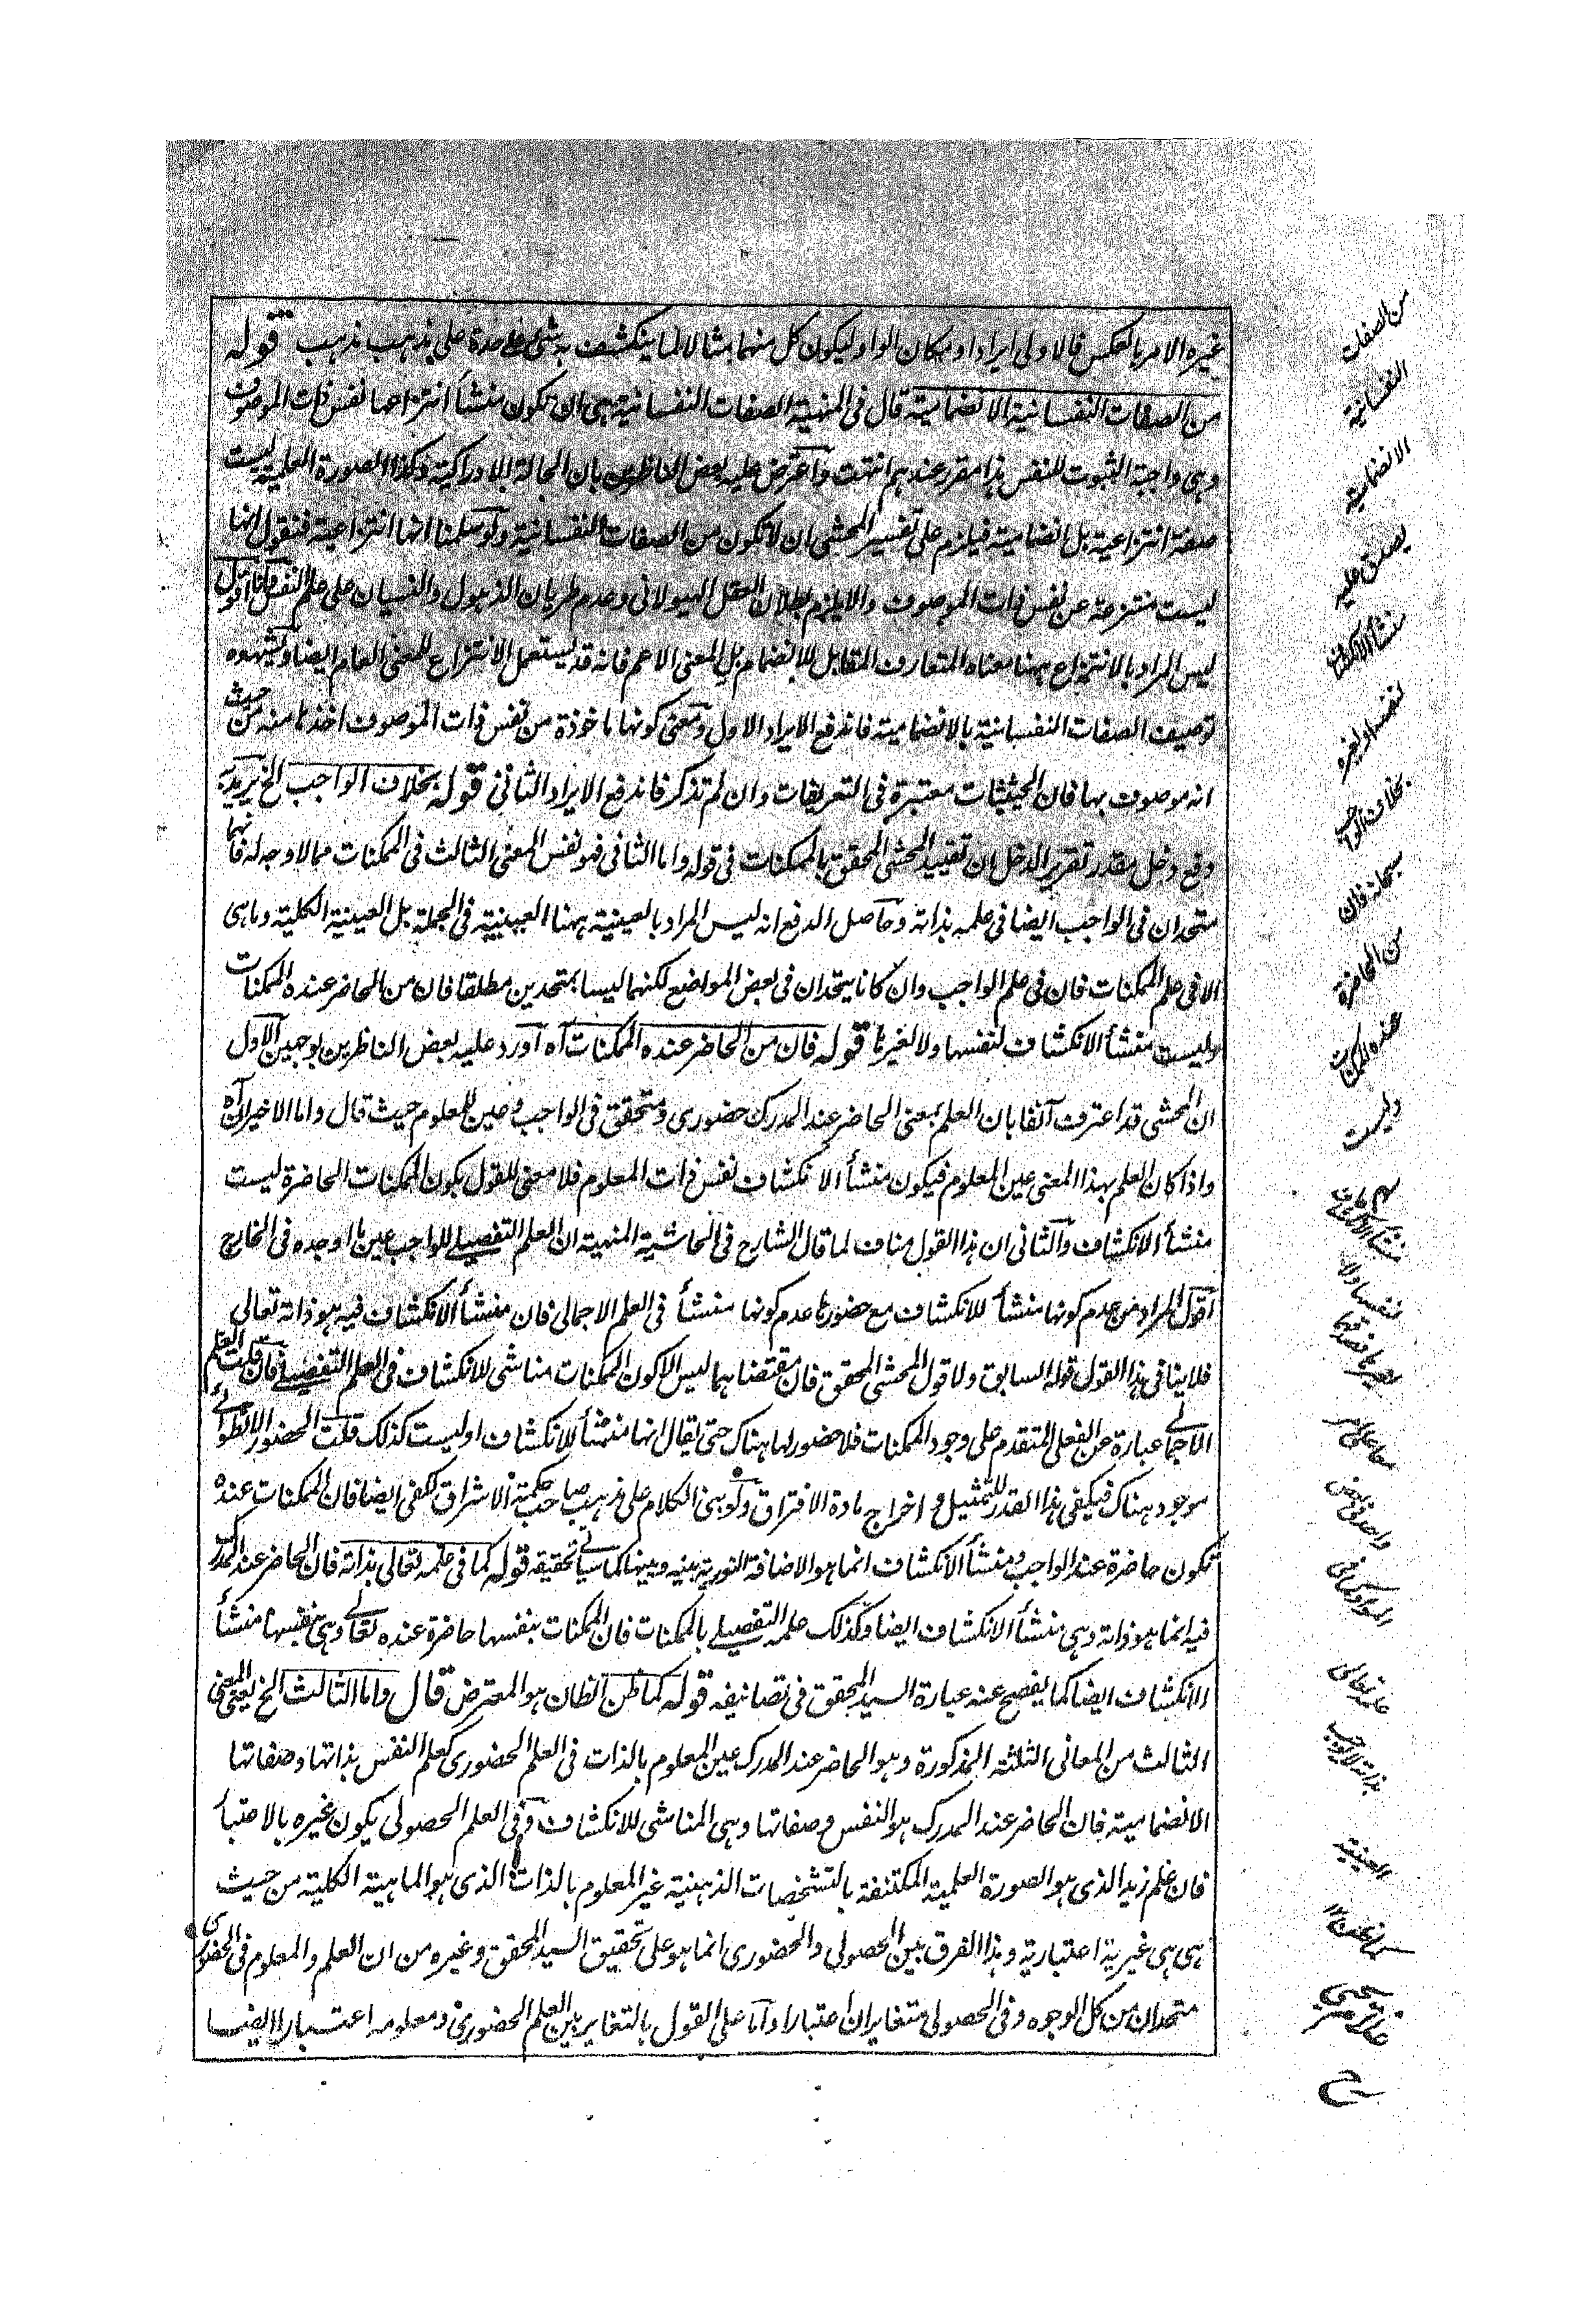 غيره الامر بالعكس فالاولى ايراد او مكان الواو ليكون كل منهما مثالا لما ينكشف به شئ على حدة على مذهب مذهب قوله
من الصفات النفسانية الانضمامية قال فى المنهية الصفات النفسانية هى ان تكون منشأ انتزاعها نفس ذات الموصوف
وهى واجبة الثبوت للنفس هذا مقرر عندهم انتهت واعترض عليه بعض الناظرين بان الحالة الادراكية وكذا الصورة العلمية ليست
صفة انتزاعية بل انضمامية فيلزم على تفسير المحشى ان لا تكون من الصفات النفسانية ولو سلمنا انها انتزاعية فنقول انها
ليست منتزعة عن نفس ذات الموصوف والا يلزم بطلان العقل الهيولانى وعدم طريان الذهول والنسيان على علم النفس اقول
ليس المراد بالانتزاع ههنا معناه المتعارف المقابل للانضمام بل المعنى الاعم فانه قد يستعمل الانتزاع للمعنى العام ايضا
توصيف الصفات النفسانية بالانضمامية فاندفع الايراد الاول ومعنى كونها ماخوذة من نفس ذات الموصوف اخذها منه من حيث
انه موصوف بها فان الحيثيات معتبرة فى التعريفات وان لم تذكر فاندفع الايراد الثانى قوله بخلاف الواجب الخ يريد به
دفع دخل مقدر تقرير الدخل ان تقييد المحشى المحقق بالممكنات فى قوله واما الثانى فهو نفس المعنى الثالث فى الممكنات مما لا وجه له فانهما
متحدان فى الواجب ايضا فى علمه بذاته وحاصل الدفع انه ليس المراد بالعينية ههنا العينية فى الجملة بل العينية الكلية وما هى
الا فى علم الممكنات فان فى علم الواجب وان كانا يتحدان فى بعض المواضع لكنهما ليسا بمتحدين مطلقا فان من الحاضر عنده الممكنات
وليست منشأ الانكشاف لنفسها ولا لغيرها قوله فان من الحاضر عنده الممكنات آه اورد عليه بعض الناظرين بوجهين الاول
ان المحشى قد اعترف آنفا بان العلم بمعنى الحاضر عند المدرك حضورى ومتحقق فى الواجب وعين للمعلوم حيث قال واما الاخيران آه
واذا كان العلم بهذا المعنى عين المعلوم فيكون منشأ الانكشاف نفس ذات المعلوم فلا معنى للقول بكون الممكنات الحاضرة ليست
منشأ الانكشاف والثانى ان هذا القول مناف لما قال الشارح فى الحاشية المنهية ان العلم التفصيلے للواجب عين ما اوجده فى الخارج
اقول المراد من عدم كونها منشأ للانكشاف مع حضورها عدم كونها منشأ فى العلم الاجمالى فان منشأ الانكشاف فيه هو ذاته تعالى
فلا ينافى هذا القول قوله السابق ولا قول المحشى المحقق فان مقتضاهما ليس الا كون الممكنات مناشى للانكشاف فى العلم التفصيلے فان قلت العلم
الاجمالے عبارة عن الفعلى المتقدم على وجود الممكنات فلا حضور لها هناك حتى يقال انها منشأ للانكشاف او ليست كذلك قلت الحضور الانطوائے
موجود هناك فيكفى هذا القدر للتمثيل واخراج مادة الافتراق ولو بنى الكلام على مذهب صاحب حكمة الاشراق لكفى ايضا فان الممكنات عنده
تكون حاضرة عند الواجب ومنشأ الانكشاف انما هو الاضافة النورية بينه وبينها كما سياتے تحقيقه قوله كما فى علمه تعالى بذاته فان الحاضر عند المدرك
فيه انما هو ذاته وهى منشأ الانكشاف ايضا وكذلك علمه التفصيلے بالممكنات فان الممكنات بنفسها حاضرة عنده تعالے وهى بنفسها منشأ
الانكشاف ايضا كما يفصح عنه عبارة السيد المحقق فى تصانيفه قوله كما ظن الظان هو المعترض قال واما الثالث الخ يعنى المعنى
الثالث من المعانى الثلثة المذكورة وهو الحاضر عند المدرك عين المعلوم بالذات فى العلم الحضورى كعلم النفس بذاتها وصفاتها
الانضمامية فان الحاضر عند المدرك هو النفس وصفاتها وهى المناشى للانكشاف وفى العلم الحصولى يكون غيره بالاعتبار
فان علم زيد الذى هو الصورة العلمية المكتنفة بالتشخصات الذهنية غير المعلوم بالذات الذى هو الماهية الكلية من حيث
هى هى غيرية اعتبارية وهذا الفرق بين الحصولى والحضورى انما هو على تحقيق السيد المحقق وغيره من ان العلم والمعلوم فى الحضورى
متحدان من كل الوجوه وفى الحصولى متغايران اعتبارا واما على القول بالتغاير بين العلم الحضورى ومعلومه اعتبارا ايضا
من الصفات
النفسانية
الانضمامية
يصدق عليه
منشأ الانكشاف
لنفسه او لغيره
بخلاف الواجب
سبحانه فان
من الحاضرة
عنده الممكنات
وليست
منشأ الانكشاف